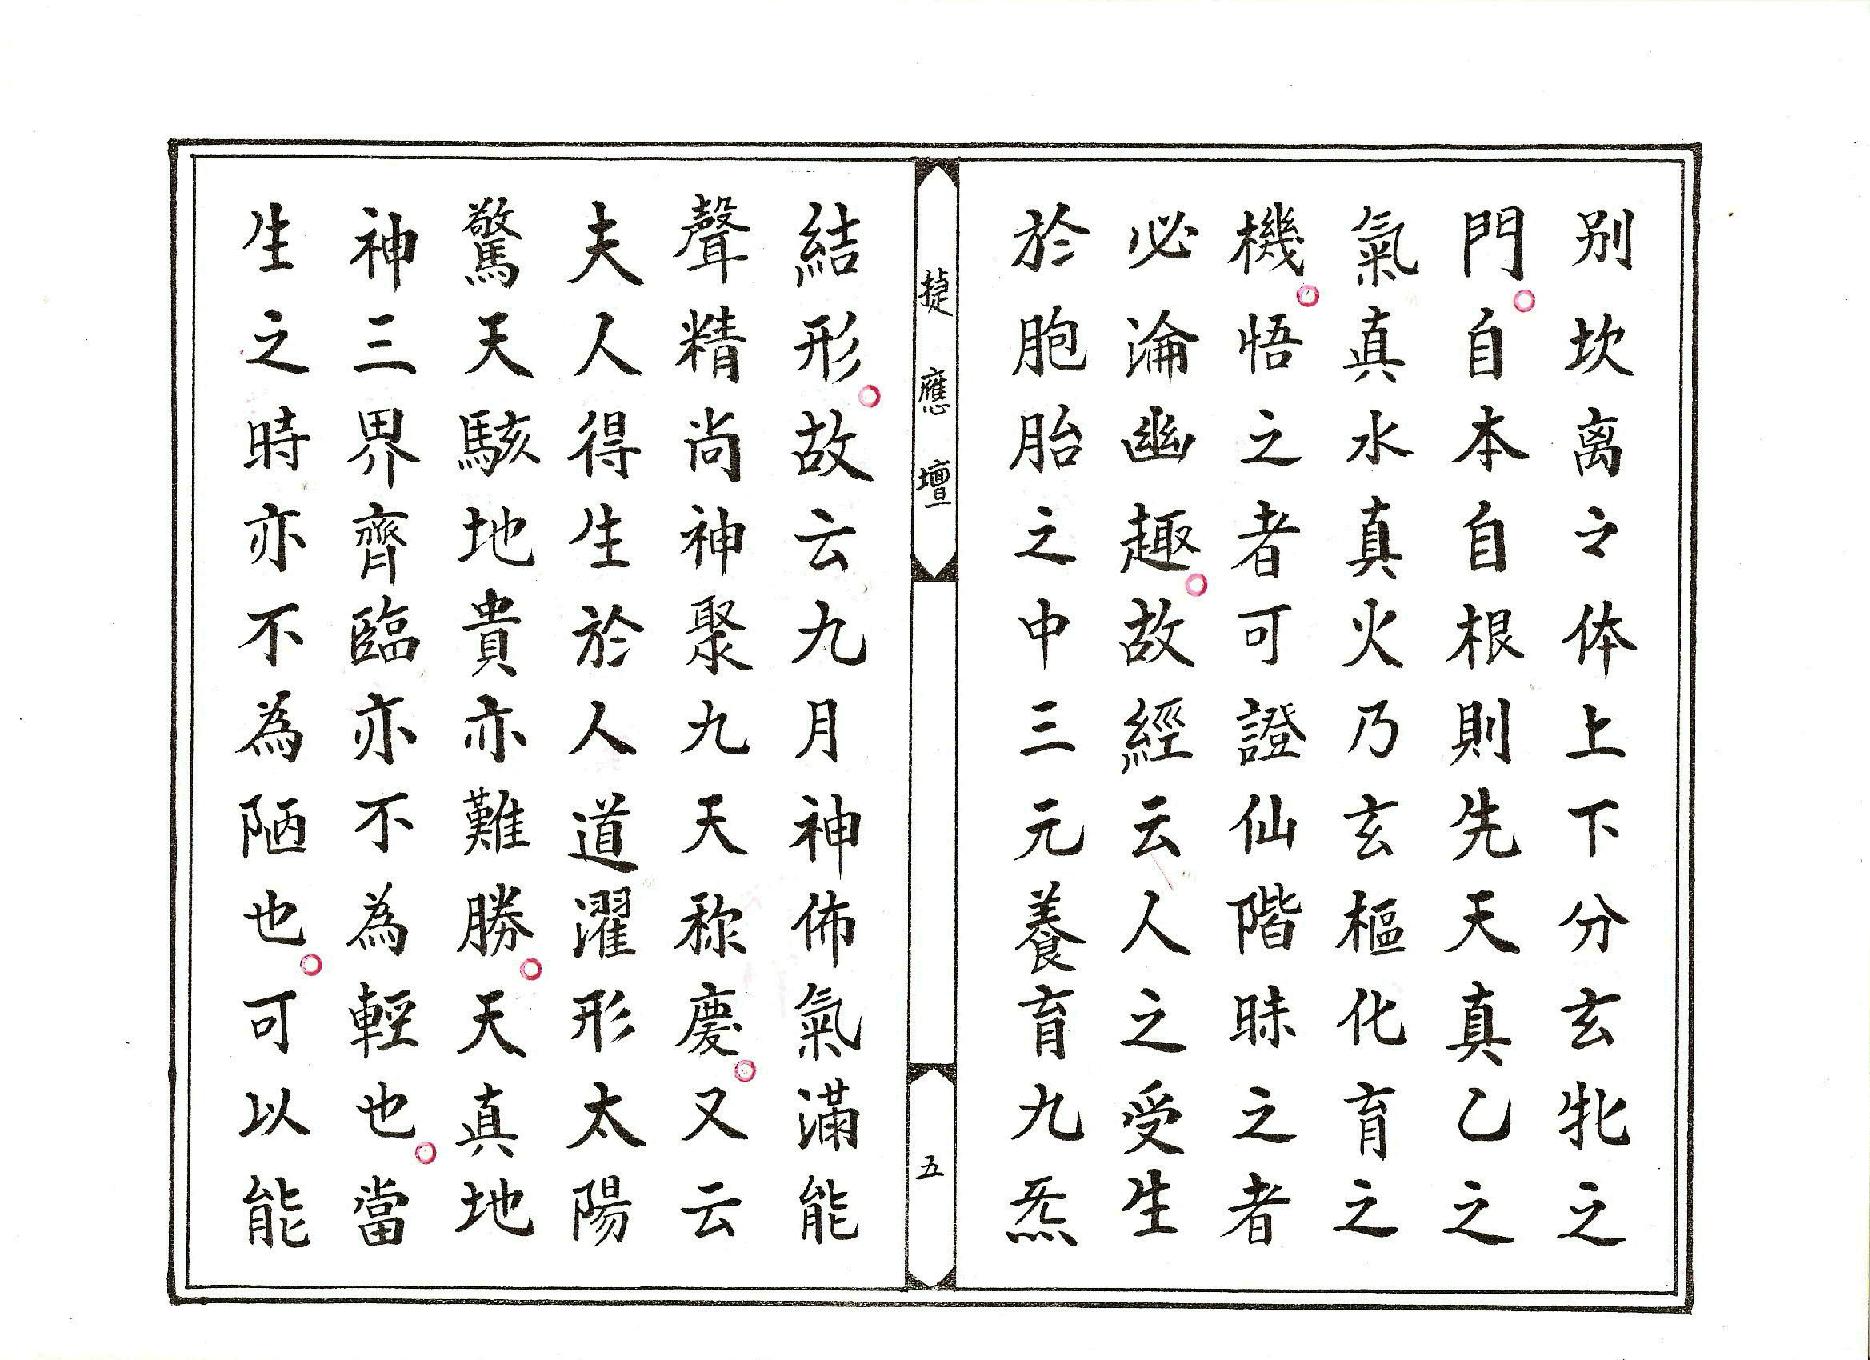 别坎离之体上下分玄牝之
門。自本自根則先天真乙之
氣真水真火乃玄樞化育之
機。悟之者可證仙階昧之者
必淪幽趣。故經云人之受生
於胞胎之中三元養育九炁
捷應壇
五
結形。故云九月神佈氣滿能
聲精尚神聚九天称慶。又云
夫人得生於人道濯形太陽
驚天駭地貴亦難勝。天真地
神三界齊臨亦不為輕也。當
生之時亦不為陋也。可以能